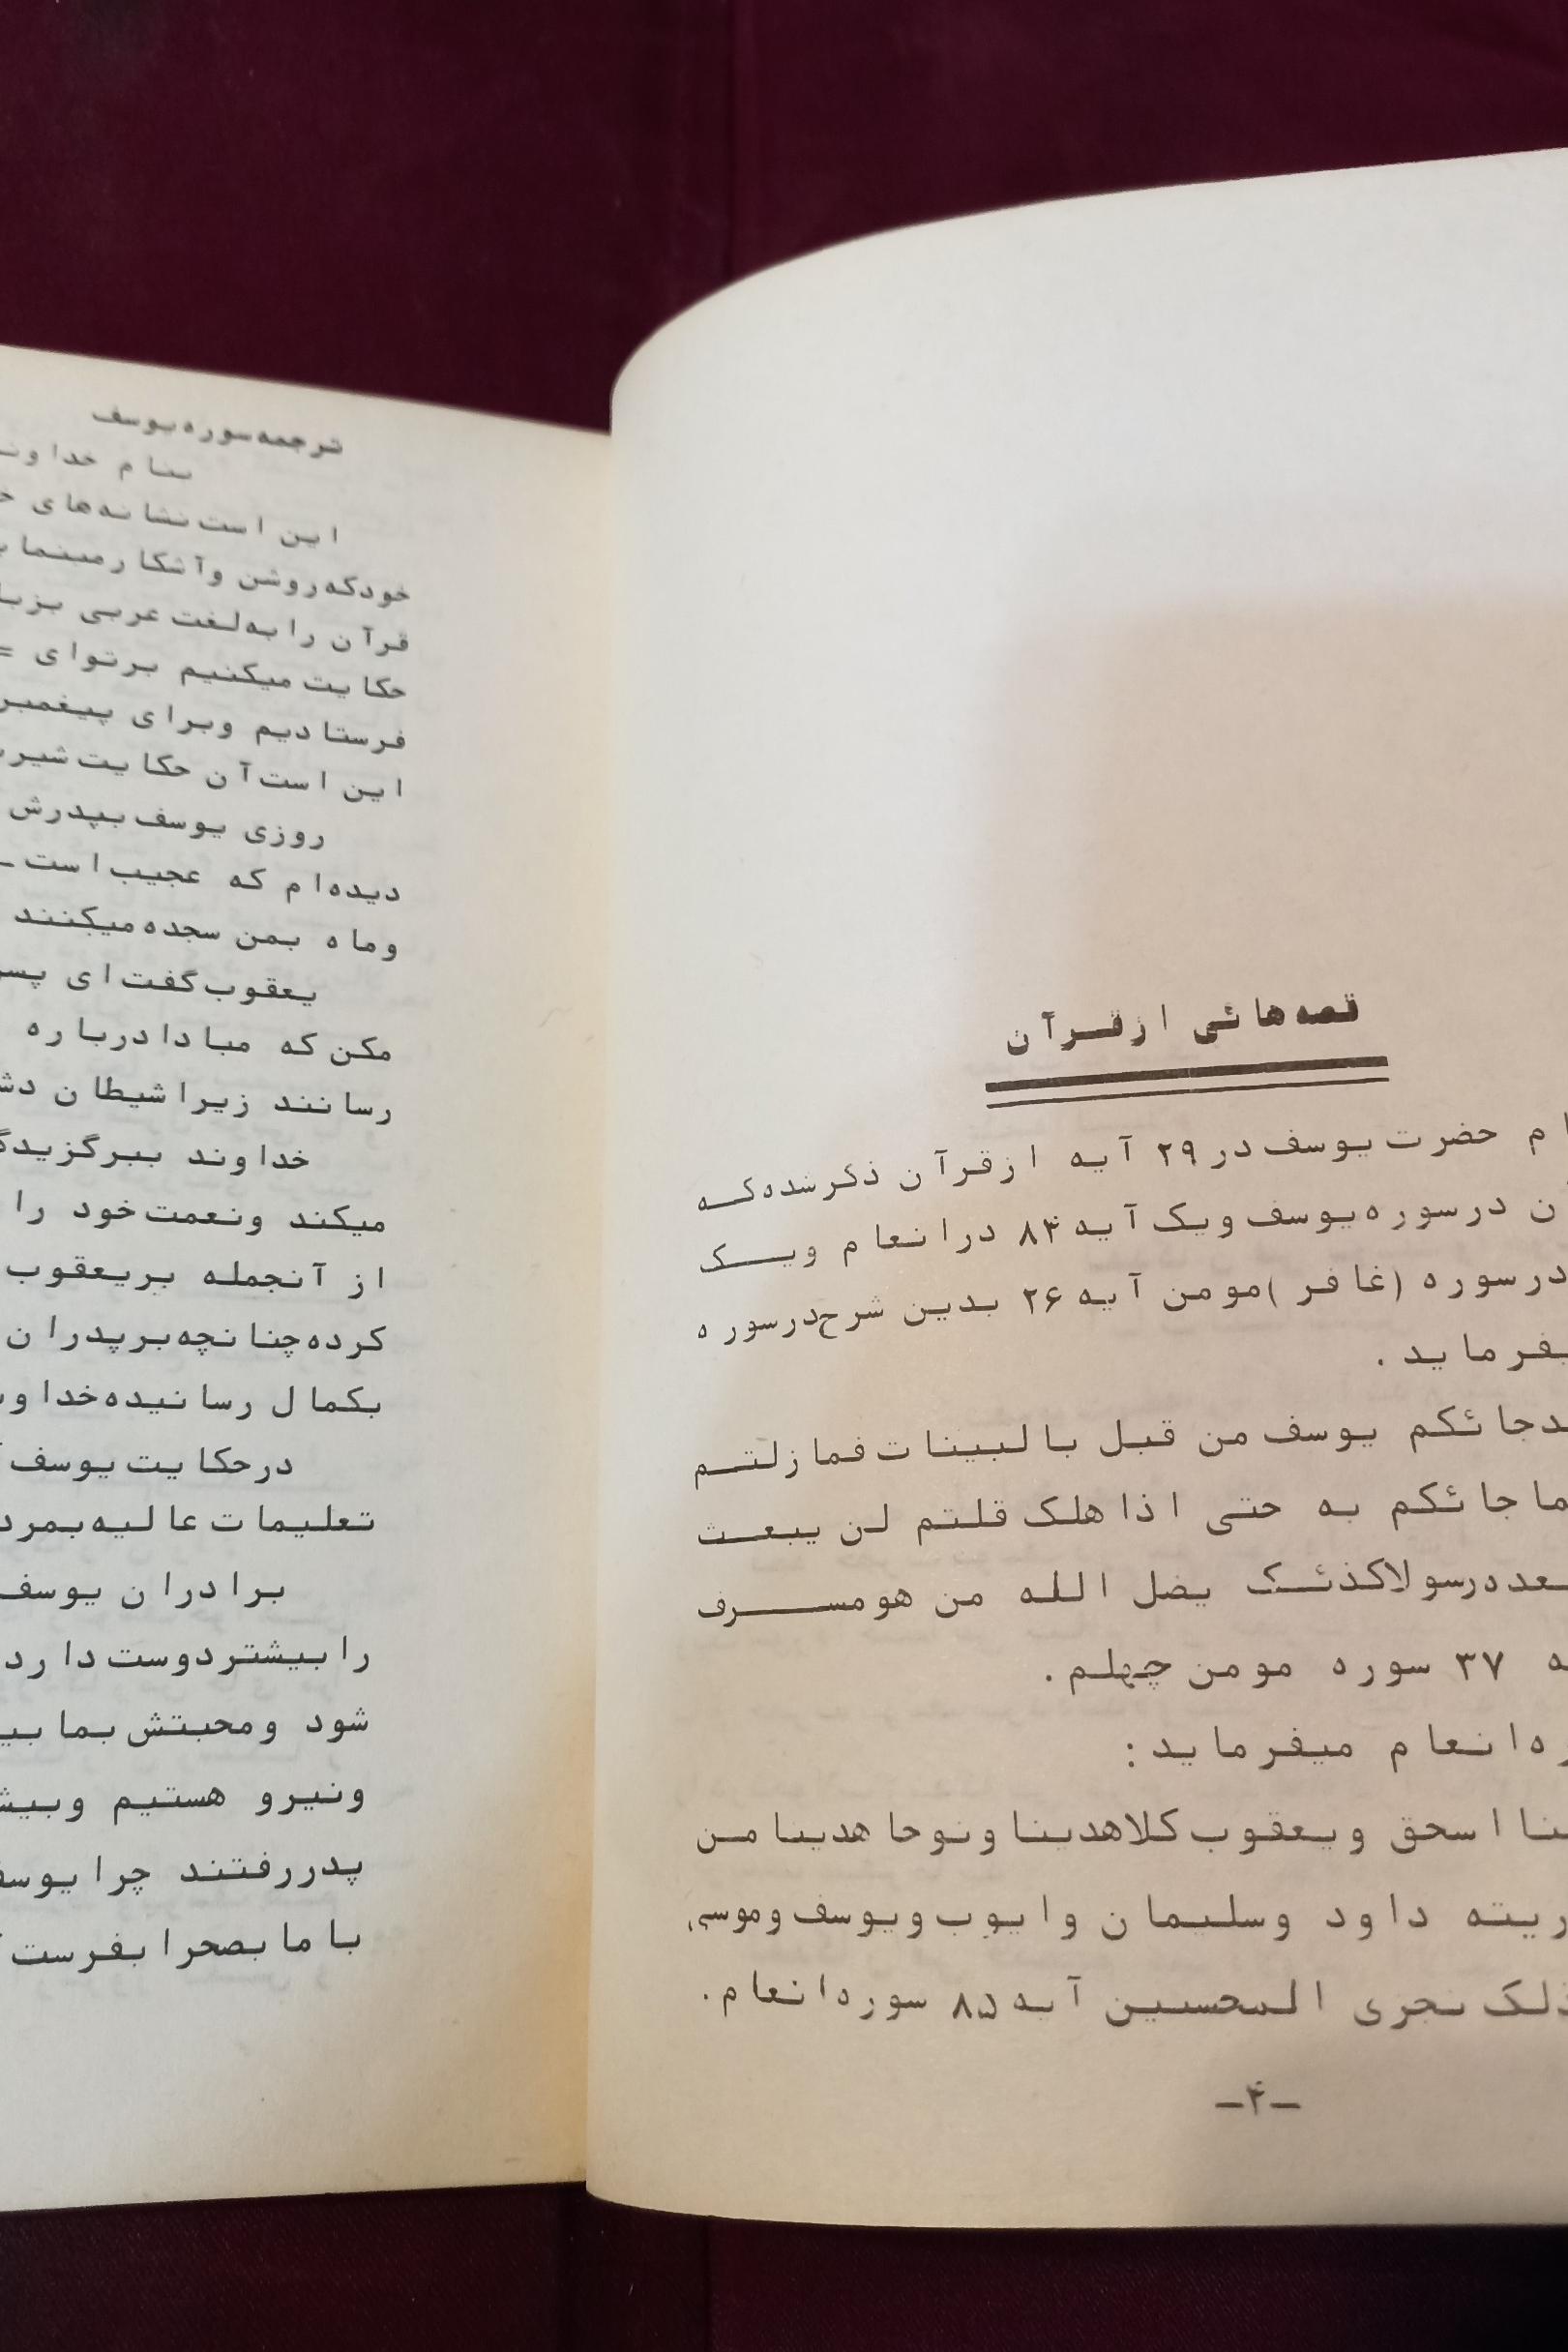 قصه‌هائی از قرآن
حضرت یوسف در ۲۹ آیه از قرآن ذکر شده که
در سوره یوسف و یک آیه ۸۴ در انعام و یک
در سوره (غافر) مومن آیه ۲۶ بدین شرح در سوره
جائکم یوسف من قبل بالبینات فما زلتم
جائکم به حتی اذا هلک قلتم لن یبعث
رسولا کذئک یضل الله من هو مسرف
۳۷ سوره مومن چهلم.
انعام میفرماید:
اسحق و یعقوب کلا هدینا و نوحا هدینا من
داود وسلیمان وایوب ویوسف وموسی
نجزی المحسین آیه ۸۵ سوره انعام.
-۴-
ترجمه سوره یوسف
بنام
این است نشانه‌های
خود که روشن وآشکار مینماید
قرآن را به لغت عربی
حکایت میکنیم برتوای
فرستادیم وبرای
این است آن حکایت
روزی یوسف بپدرش
دیده‌ام که عجیب است
وماه بمن سجده میکنند
یعقوب گفت ای
مکن که مبادا درباره
رسانند زیرا شیطان
خداوند
میکند ونعمت خود را
از آنجمله بریعقوب
کرده چنانچه برپدران
بکمال رسانیده
درحکایت یوسف
تعلیمات عالیه
برادران یوسف
را بیشتر دوست دارد
شود ومحبتش بما
ونیرو هستیم
پدر رفتند چرا
با ما بصحرا بفرست